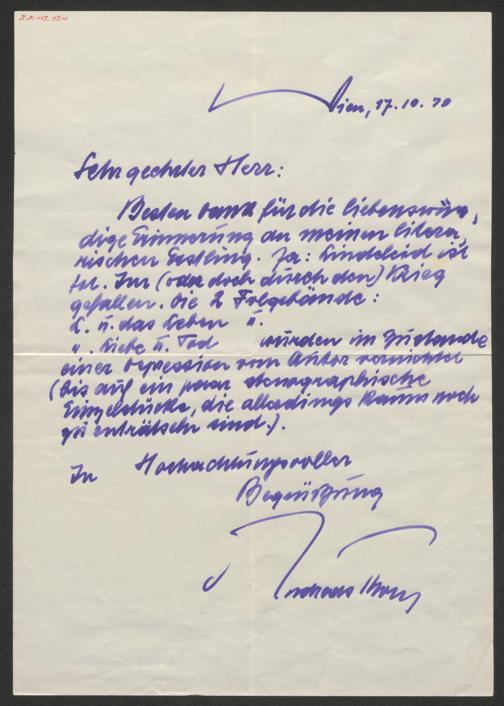 I.N. 112.124
Wien, 17.10.70
Sehr geehrter Herr:
Besten Dank für die liebenswür,
dige Erinnerung an meinen litera,
rischen Erstling. Ja: Lindeleid ist
tot. Im (oder doch durch den) Krieg
gefallen. Die 2 Folgebände:
L. u. das Leben u.
". Liebe u. Tod wurden im Zustande
einer Depression vom Autor vernichtet
(bis auf ein paar stenographische
Einzelstücke, die allerdings kaum noch
zu enträtseln sind.).
In Hochachtungsvoller
Begrüßung
Andreas Thom